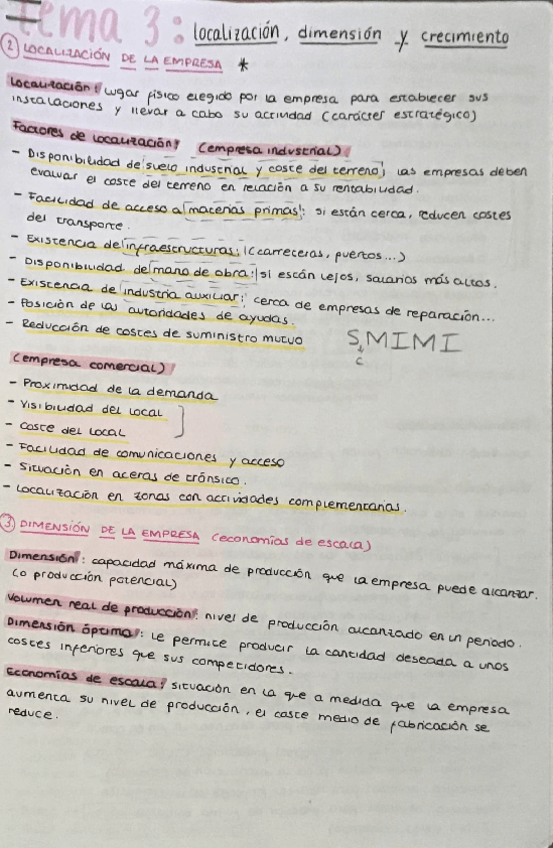 Tema 3: localización, dimensión y crecimiento
2 LOCALIZACIÓN DE LA EMPRESA *
Localización: lugar físico elegido por la empresa para establecer sus
instalaciones y llevar a cabo su actividad (carácter estratégico)
Factores de localización (empresa industrial)
- Disponibilidad de suelo industrial y coste del terreno; las empresas deben
evaluar el coste del terreno en relación a su rentabilidad.
- Facilidad de acceso a materias primas: si están cerca, reducen costes
del transporte.
- Existencia de infraestructuras; (carreteras, puertos...)
- Disponibilidad de mano de obra: si están lejos, salarios más altos.
- Existencia de industria auxiliar; cerca de empresas de reparación...
- Posición de las autoridades de ayudas.
- Reducción de costes de suministro mutuo
S, MIMI
c
(empresa comercial)
- Proximidad de la demanda
- Visibilidad del local
- Coste del local
- Facilidad de comunicaciones y acceso
- Situación en aceras de tránsito.
- Localización en zonas con actividades complementarias.
3 DIMENSIÓN DE LA EMPRESA (economías de escala)
Dimensión: capacidad máxima de producción que la empresa puede alcanzar.
(o producción potencial)
Volumen real de producción: nivel de producción alcanzado en un periodo.
Dimensión óptima: le permite producir la cantidad deseada a unos
costes inferiores que sus competidores.
Economías de escala: situación en la que a medida que la empresa
aumenta su nivel de producción, el coste medio de fabricación se
reduce.